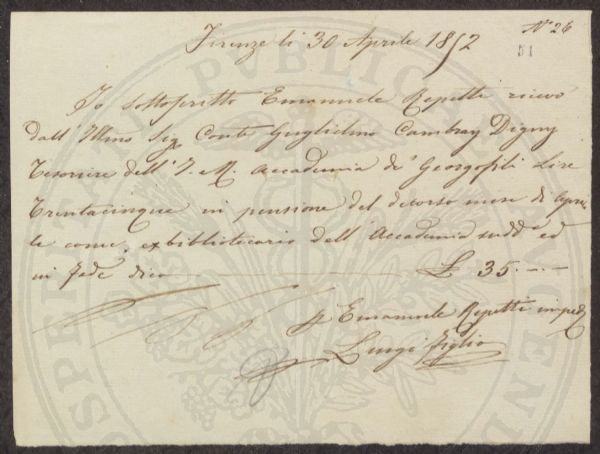 Nº 26
51
Firenze li 30 Aprile 1852
Io sottoscritto Emanuele Repetti ricevo
dall' Illmo Sig. Conte Guglielmo Cambray Digny
Tesoriere dell' I. e R. Accademia de' Georgofili Lire
Trentacinque in pensione del decorso mese di Apri-
le come exbibliotecario dell' Accademia sudd.ª ed
in fede dico £ 35.-.-
Emanuele Repetti imped.
Luigi figlio
PUBLICAE
PROSPERITATI